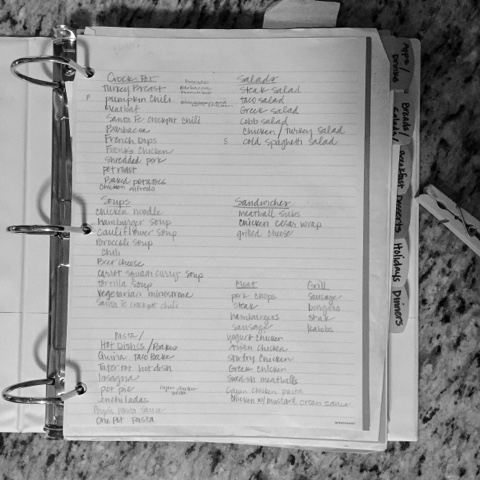 Crock Pot
Turkey Breast
F pumpkin chili
Meatloaf
Santa Fe crockpot chili
Barbacoa
French Dips
Fiesta Chicken
shredded pork
pot roast
Baked potatoes
Chicken alfredo
Salads
Steak salad
Taco salad
Greek salad
Cobb salad
Chicken / Turkey Salad
S cold spaghetti salad
Soups
chicken noodle
hamburger soup
cauliflower soup
Broccoli soup
chili
Beer cheese
carrot squash curry soup
tortilla soup
vegetarian minestrone
Santa Fe crockpot chili
Sandwiches
meatball subs
chicken cesar wrap
grilled cheese
Meat
pork chops
steak
hamburgers
sausage
yogurt chicken
Asian chicken
stir fry chicken
Greek chicken
Swedish meatballs
cajun chicken pasta
chicken w/ mustard cream sauce
Grill
sausage
burgers
steak
kabobs
Pasta/
Hot Dishes/Bakes
Quinoa Taco Bake
Tater tot hotdish
lasagna
pot pie
enchiladas
One Pot pasta
Apps/
Drinks
Breads
Salads/
Breakfast
Desserts
Holidays
Dinners